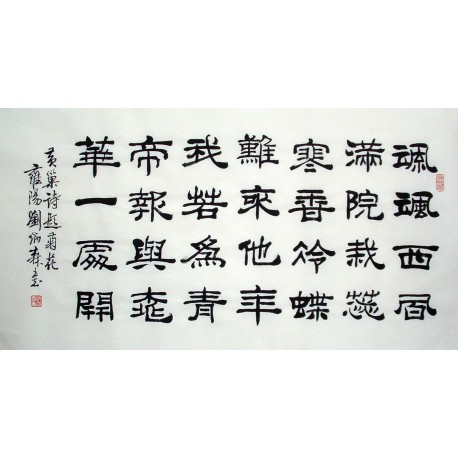 颯颯西風
滿院栽蕊
寒香冷蝶
難來他年
我若為青
帝報與桃
華一處開
黃巢詩題菊花
雍陽劉炳森